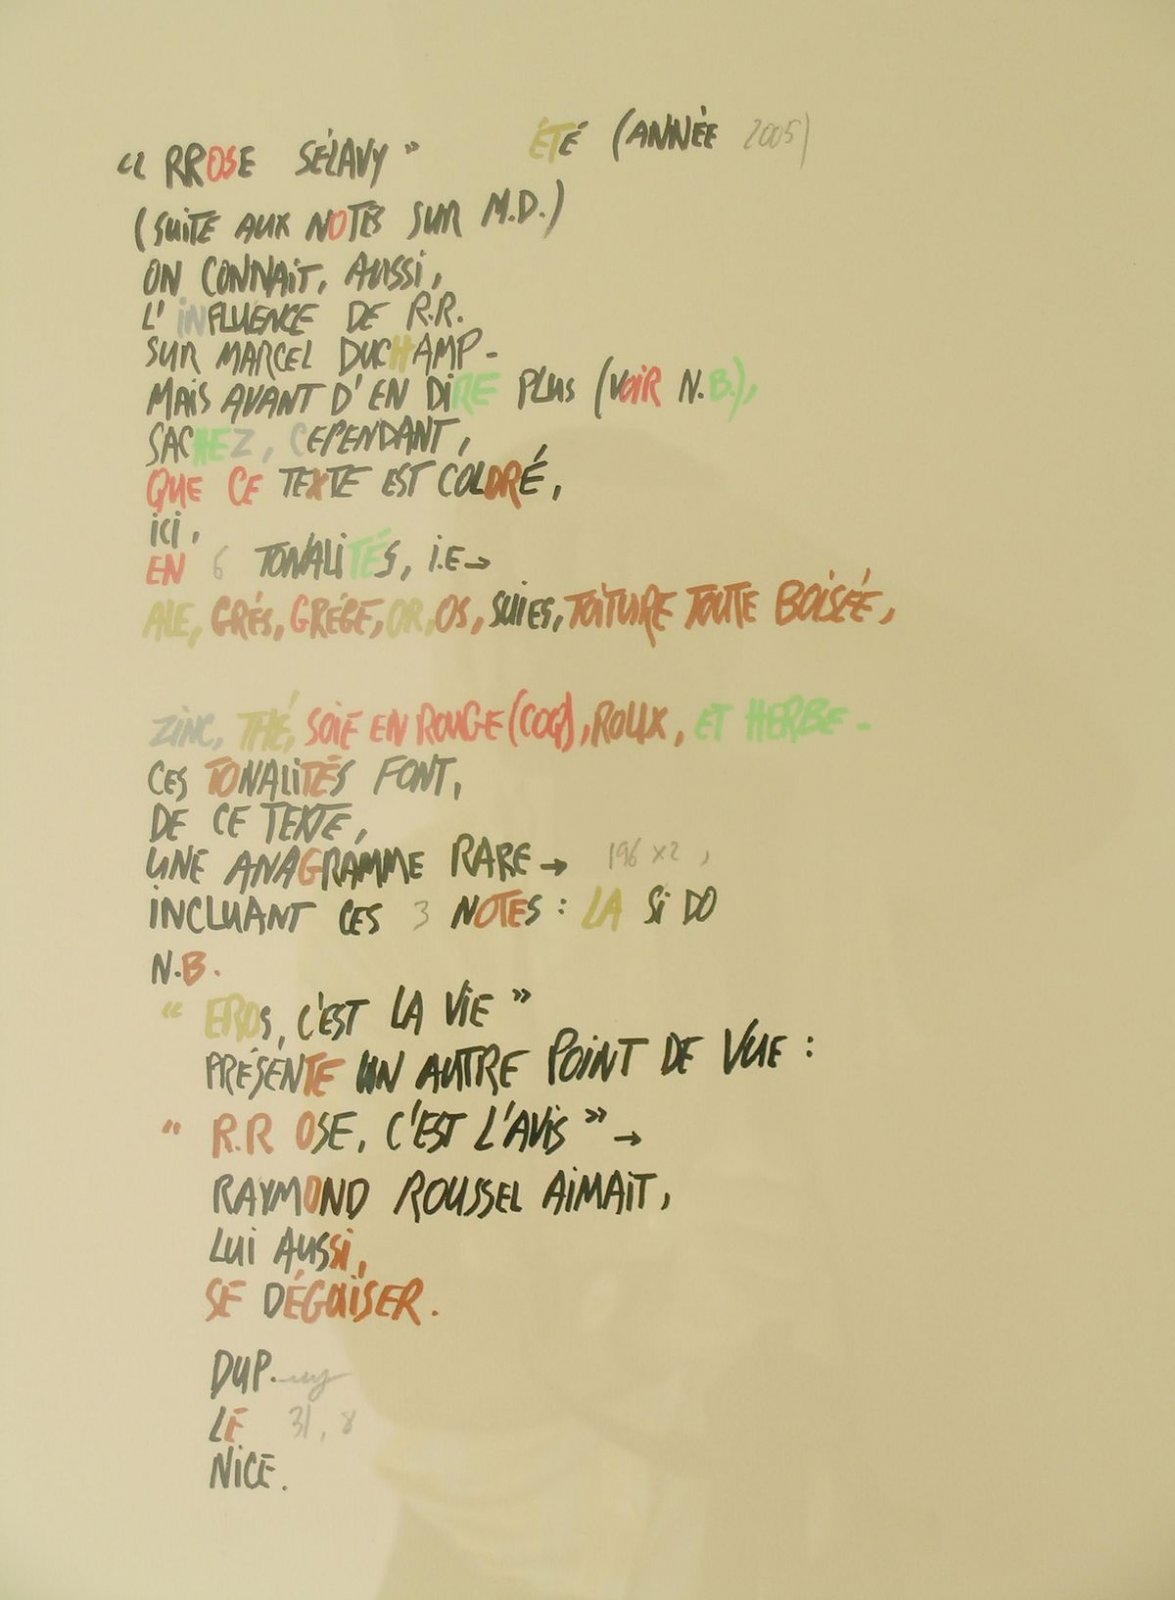 « RROSE SÉLAVY » ÉTÉ (ANNÈE 2005)
(SUITE AUX NOTES SUR M.D.)
ON CONNAIT, AUSSI,
L'INFLUENCE DE R.R.
SUR MARCEL DUCHAMP-
MAIS AVANT D'EN DIRE PLUS (VOIR N.B.),
SACHEZ, CEPENDANT,
QUE CE TEXTE EST COLORÉ,
ICI,
EN 6 TONALITÉS, I.E→
ALE, GRÉS, GRÉGE, OR, OS, SUIES, TOITURE TOUTE BOISÉE,
ZINC, THÉ, SOIE EN ROUGE (COQ), ROUX, ET HERBE-
CES TONALITÉS FONT,
DE CE TEXTE,
UNE ANAGRAMME RARE → 196 x2,
INCLUANT CES 3 NOTES : LA SI DO
N.B.
" EROS, C'EST LA VIE "
PRÉSENTE UN AUTRE POINT DE VUE :
" R.R OSE, C'EST L'AVIS " →
RAYMOND ROUSSEL AIMAIT,
LUI AUSSI,
SE DÉGUISER.
DUP.
LE 31, 8
NICE.